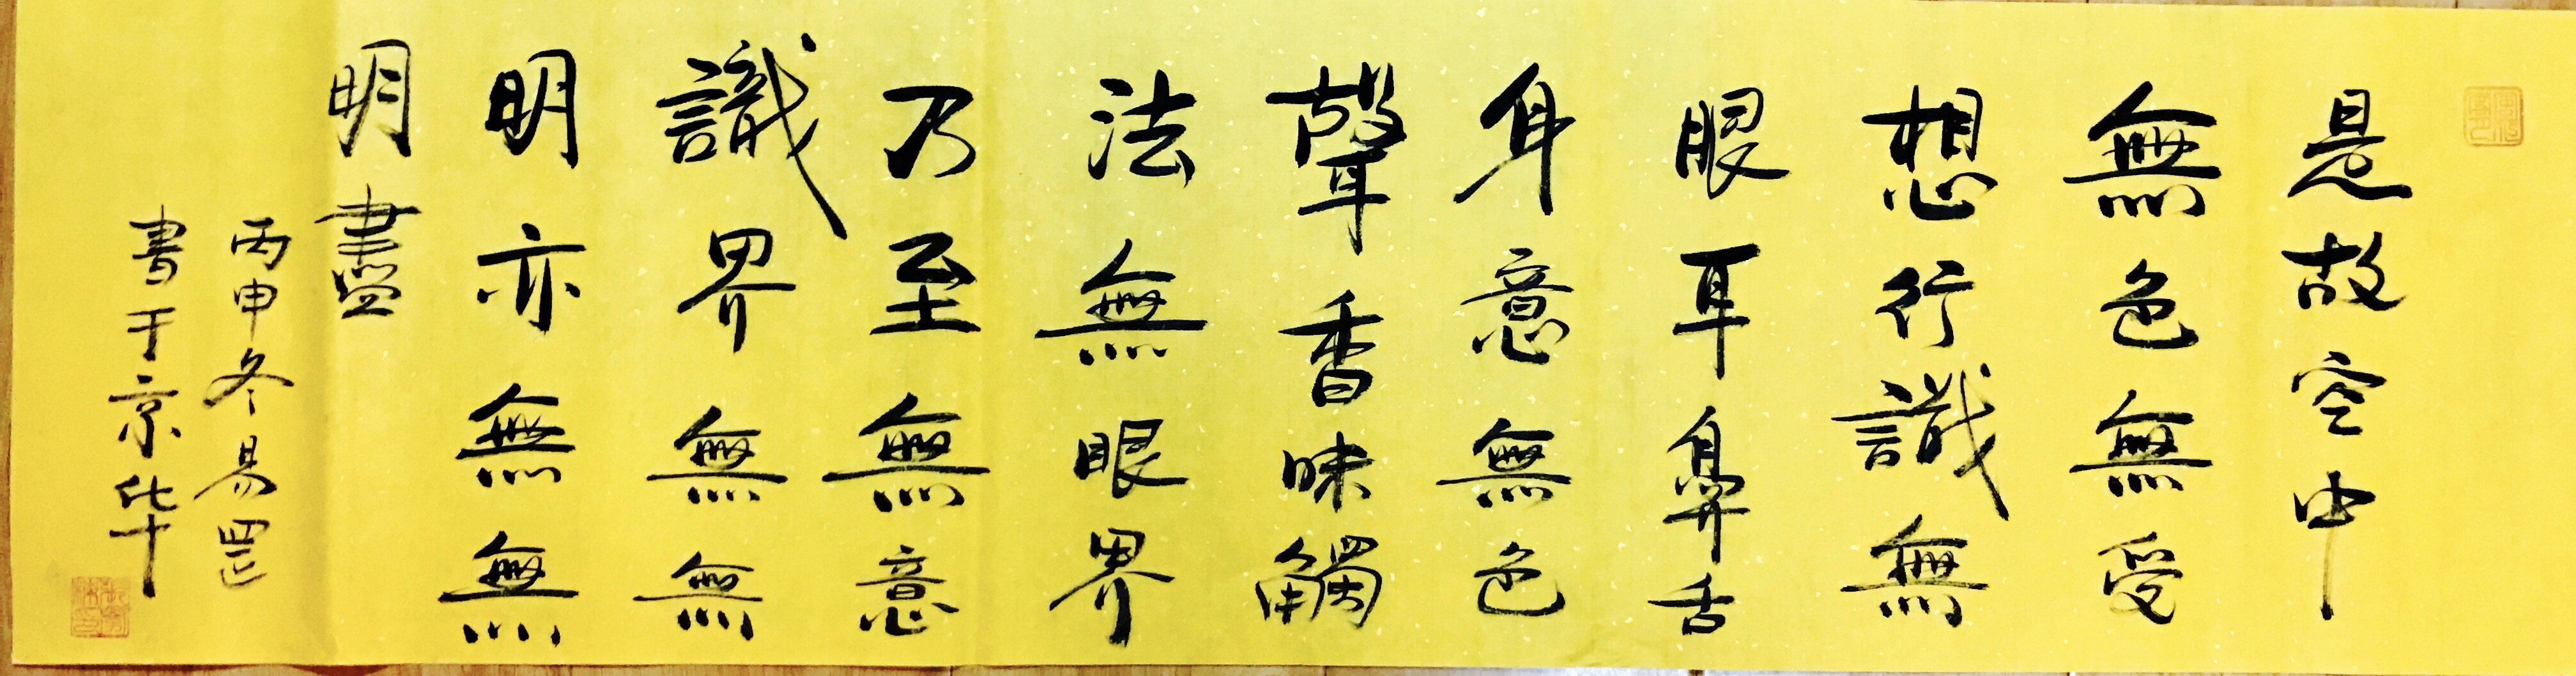 是故空中
無色無受
想行識無
眼耳鼻舌
身意無色
聲香味觸
法無眼界
乃至無意
識界無無
明亦無無
明盡
丙申冬易罡
書于京华